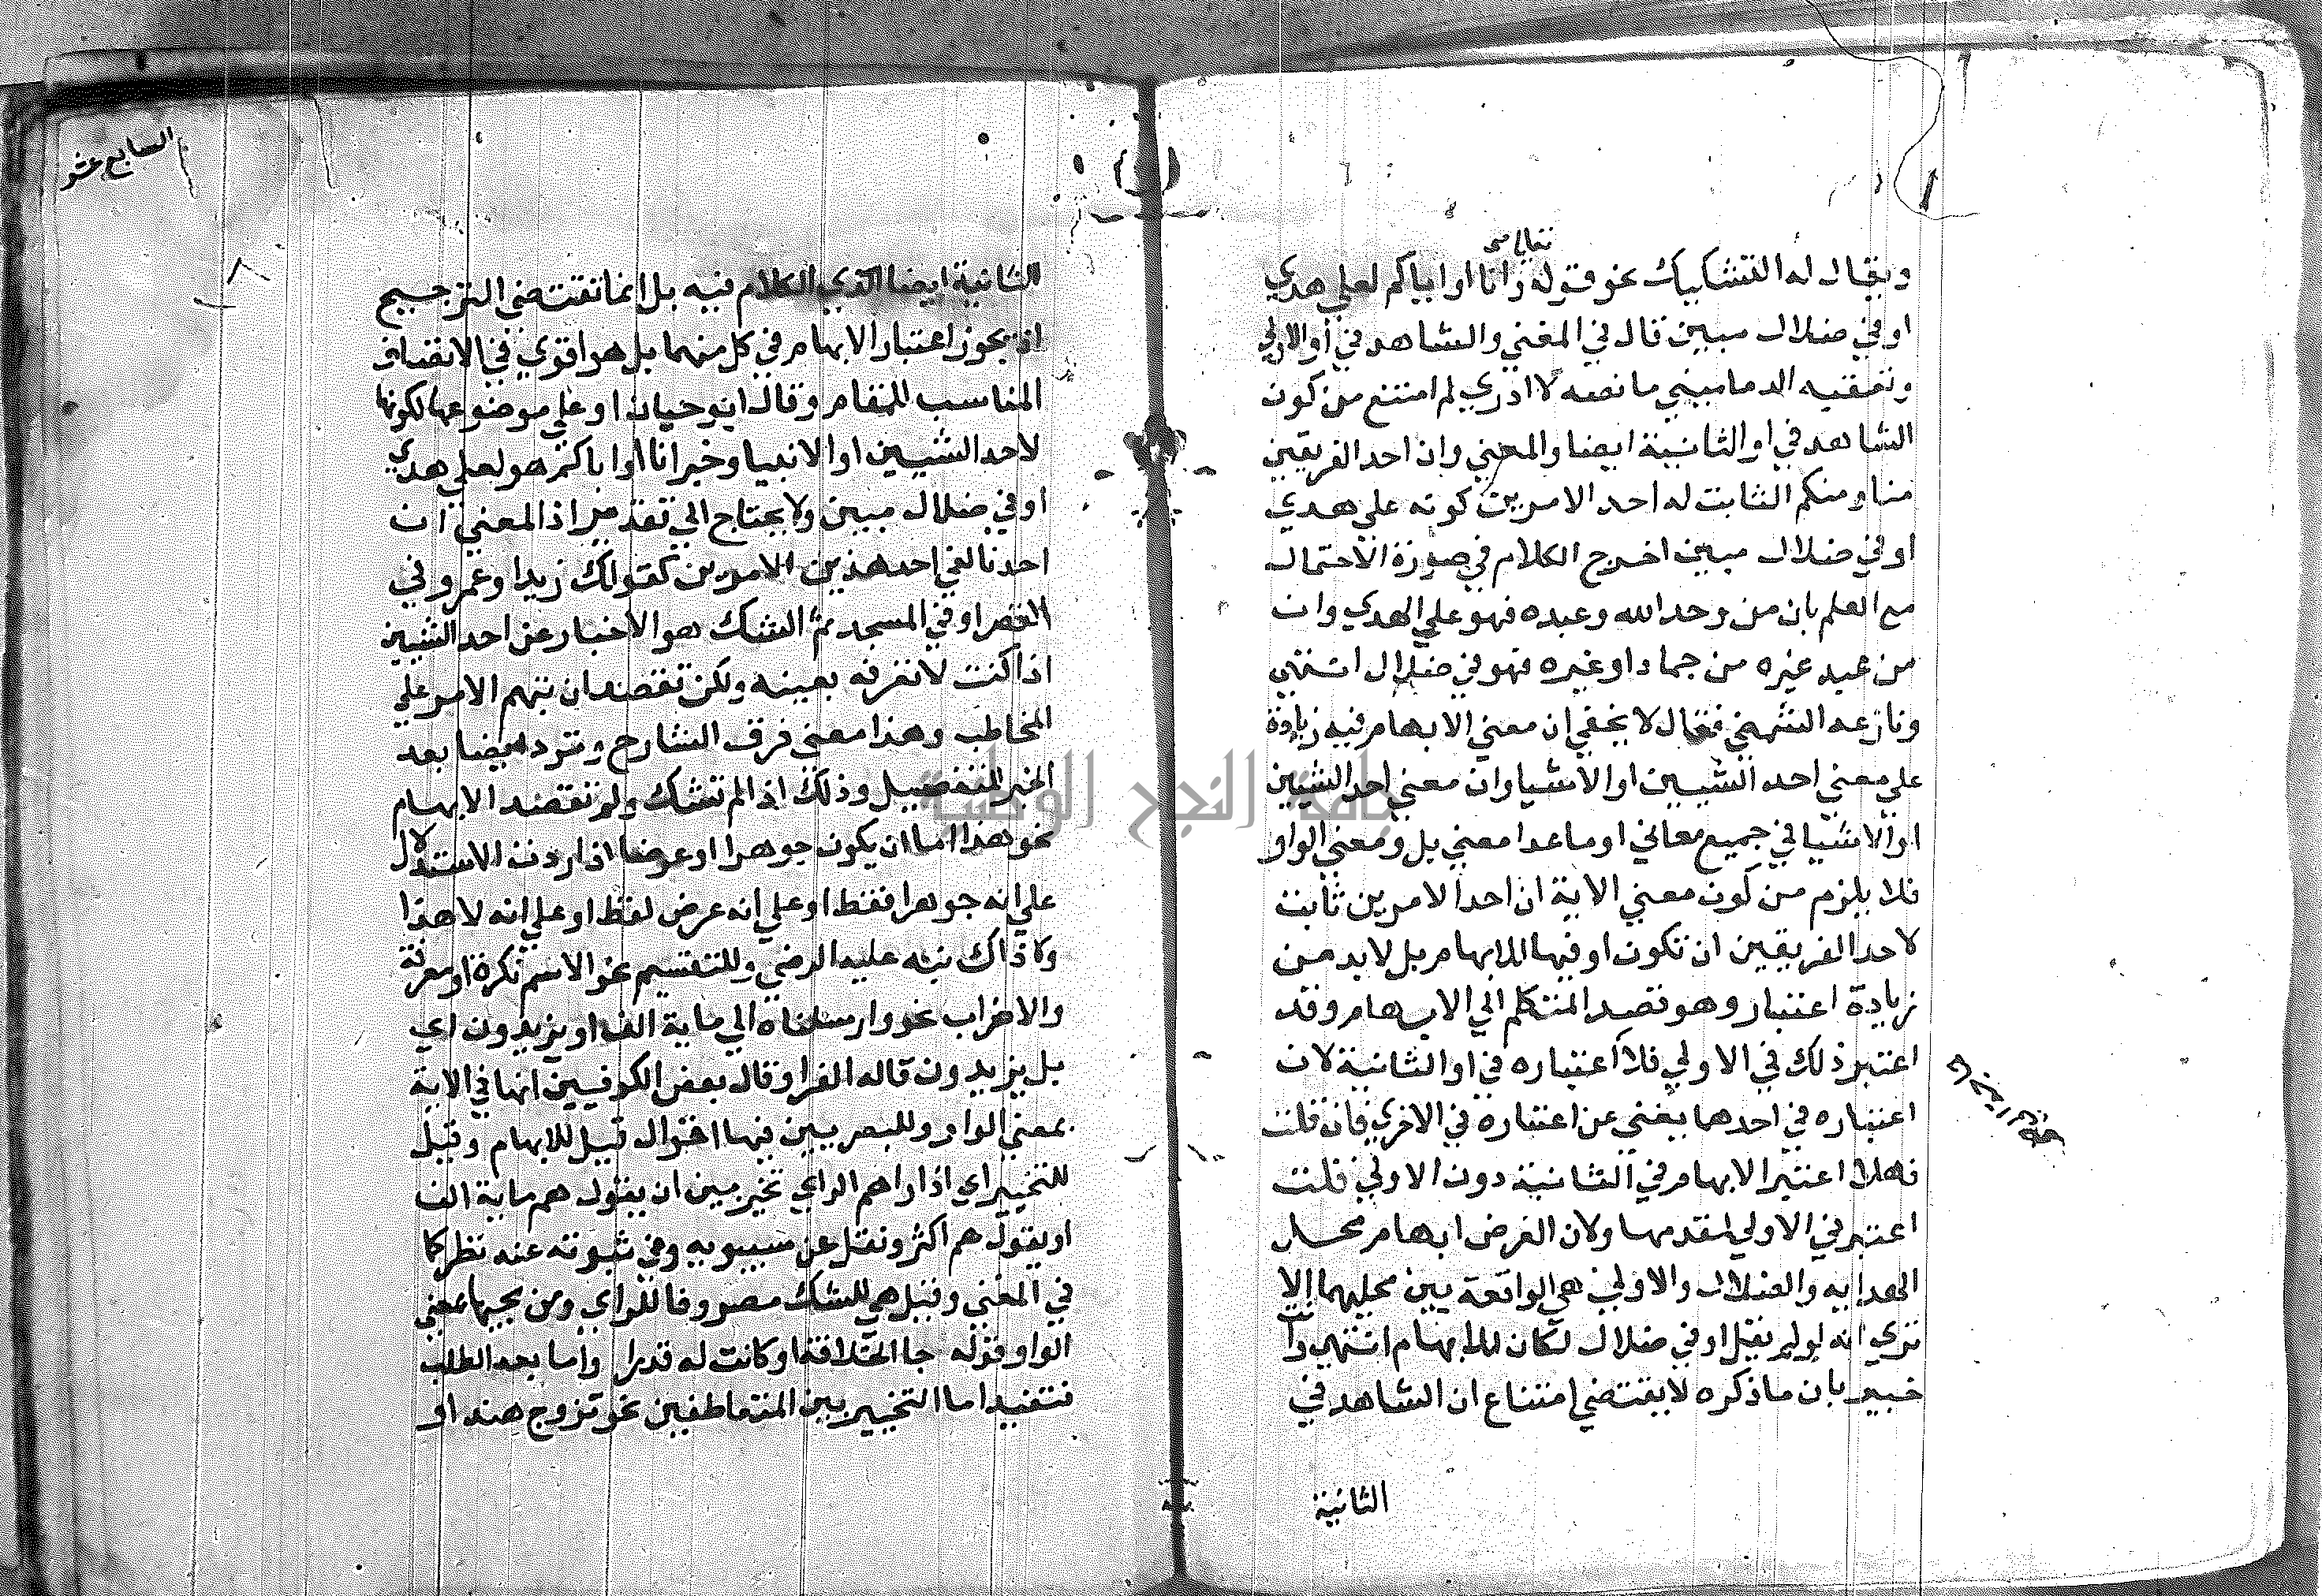 تعالى صح
ويقال له التشكيك نحو قوله وانا او اياكم لعلي هدي
او في ضلال مبين قال في المغني والشاهد في او الاولي
وتعقبه الدماميني ما نصه لا ادري لم امتنع من كون
الشاهد في او الثانية ايضا والمعني وان احد الفريقين
منا ومنكم الثابت له احد الامرين كونه علي هدي
او في ضلال مبين اخرج الكلام في صورة الاحتمال
مع العلم بان من وحد الله وعبده فهو علي الهدي وان
من عبد غيره من جماد او غيره فهو في ضلال انتهي
ونازعه الشمني فقال لا يخفي ان معني الابهام فيه زيادة
علي معني احد الشيين او الاشيا وان معني احد الشيين
او الاشيا في جميع معاني او ما عدا معني بل ومعني الواو
فلا يلزم من كون معني الاية ان احد الامرين ثابت
لاحد الفريقين ان تكون او فيها للابهام بل لابد من
زيادة اعتبار وهو قصد المتكلم الي الابهام وقد
اعتبر ذلك في الاولي فلا اعتباره في او الثانية لان
اعتباره في احدهما يغني عن اعتباره في الاخري فان قلت
فهلا اعتبر الابهام في الثانية دون الاولي قلت
اعتبر في الاولي لتقدمها ولان الغرض ابهام محل
الهداية والضلال والاولي هي الواقعة بين محليهما الا
تري انه لو لم يقل او في ضلال لكان للابهام انتهي وانت
خبير بان ما ذكره لا يقتضي امتناع ان الشاهد في
الثانية
السابع عشر
الثانية ايضا الذي الكلام فيه بل انما تقتضي الترجيح
اذ يجوز اعتبار الابهام في كل منهما بل هو اقوي في الانصاف
المناسب للمقام وقال ابو حيان او علي موضوعها لكونها
لاحد الشيين او الاشيا وخبر انا او اياكم هو لعلي هدي
او في ضلال مبين ولا يحتاج الي تقدير اذ المعني ان
احدنا لفي احد هذين الامرين كقولك زيد او عمرو في
القصر او في المسجد ثم الشك هو الاخبار عن احد الشيين
اذا كنت لا تعرفه بعينه ولكن تقصد ان تبهم الامر علي
المخاطب وهذا معني فرق الشارح وترد ايضا بعد
الخبر للتفصيل وذلك اذا لم تشك ولم تقصد الابهام
نحو هذا اما ان يكون جوهرا او عرضا اذا اردت الاستدلال
علي انه جوهر فقط او علي انه عرض فقط او علي انه لا هذا
ولا ذاك نبه عليه الرضي وللتقسيم نحو الاسم نكرة او معرفة
والاضراب نحو وارسلناه الي ماية الف او يزيدون اي
بل يزيدون قاله الفرا وقال بعض الكوفيين انها في الاية
بمعني الواو وللبصريين فيها اقوال قيل للابهام وقيل
للتخيير اي اذا راهم الراي تخير بين ان يقول هم ماية الف
او يقول هم اكثر ونقل عن سيبويه وفي ثبوته عنه نظر كما
في المغني وقيل هي للشك مصروفا للراي ومن مجيها بمعني
الواو قوله جا الخلافة او كانت له قدرا واما بعد الطلب
فتفيد اما التخيير بين المتعاطفين نحو تزوج هند او